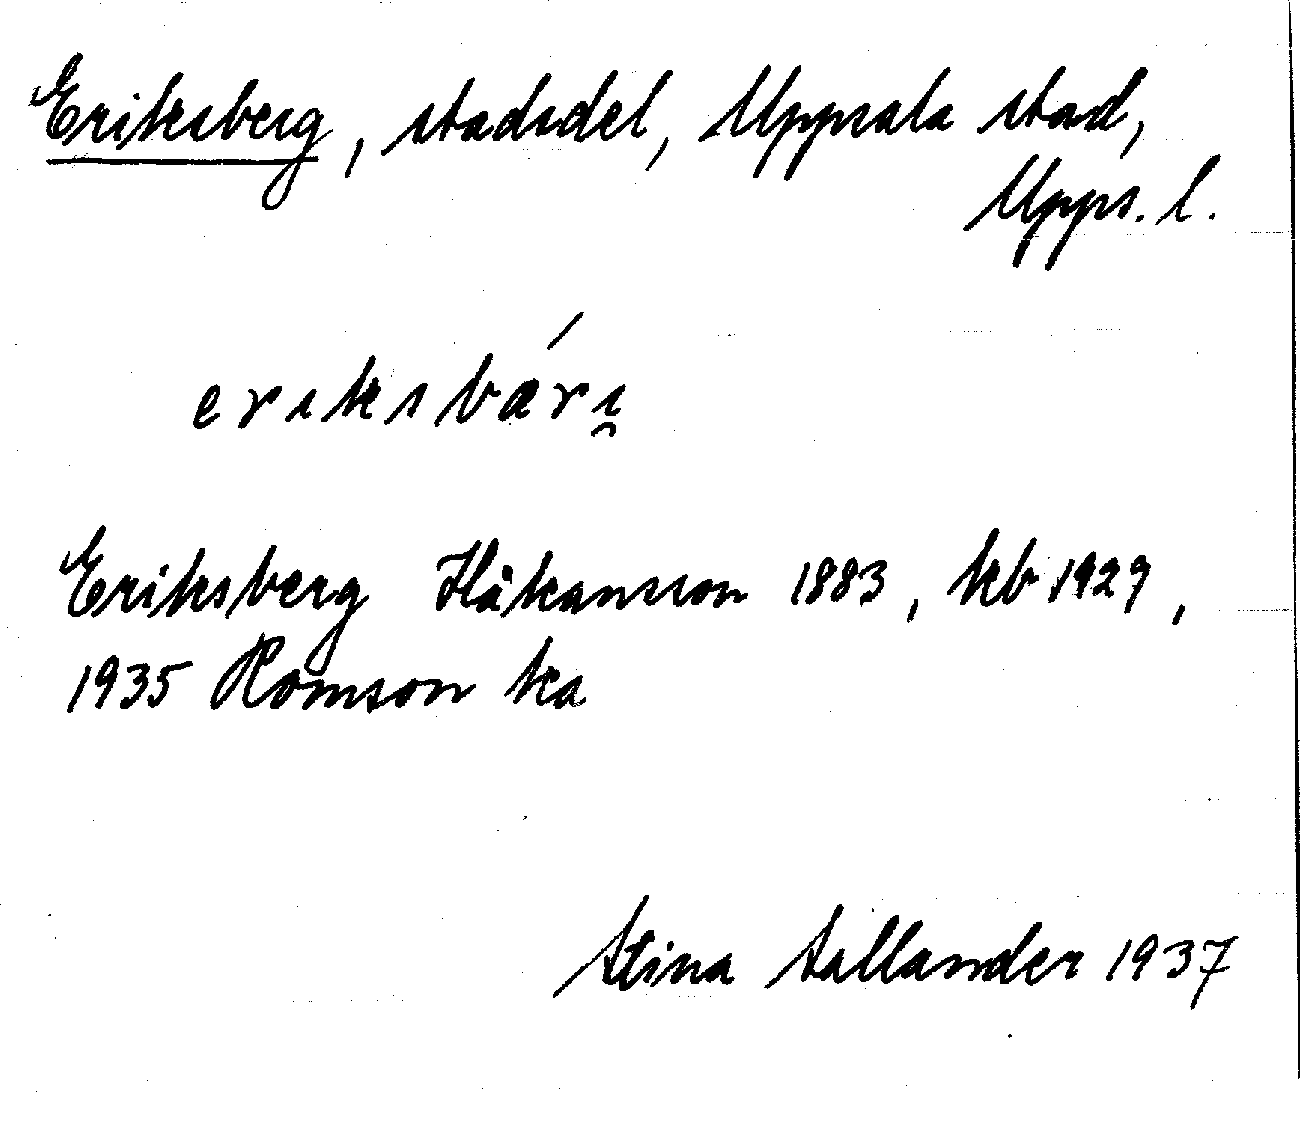 Eriksberg, stadsdel, Uppsala stad,
Upps. l.
eriksbærı̯́
Eriksberg Håkansson 1883, kb 1929,
1935 Romson ka
Stina Sallander 1937